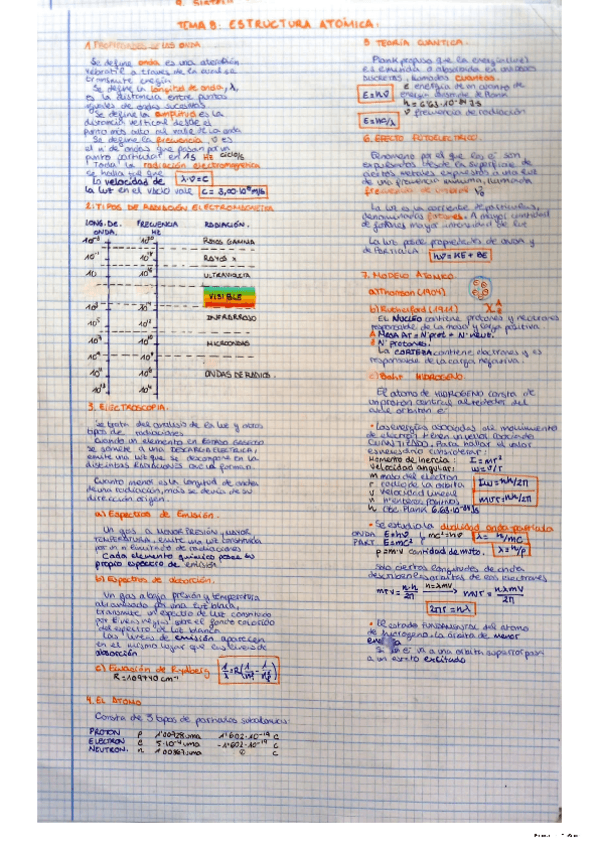 TEMA 8: ESTRUCTURA ATÓMICA.
1. PROPIEDADES DE LAS ONDA
Se define onda es una alteración
a traves de la cual se
transmite energia
Se define la longitud de onda, λ,
es la distancia entre puntos
iguales de ondas sucesivas
Se define la amplitud es la
distancia vertical desde el
punto más alto al valle de la onda
Se define la frecuencia, ν es
el nº de ondas que pasan por un
punto particular en 1s Hz ciclo/s
Toda la radiación electromagnetica
se halla que
la velocidad de λ·ν=C
la luz en el vacío vale C = 3,00·10⁸ m/s
2. TIPOS DE RADIACIÓN ELECTROMAGNETICA
LONG. DE ONDA. FRECUENCIA HZ RADIACIÓN.
RAYOS GAMMA
RAYOS X
ULTRAVIOLETA
VISIBLE
INFRARROJO
MICROONDAS
ONDAS DE RADIO.
3. ELECTROSCOPIA.
Se trata del análisis de la luz y otros
tipos de radiaciones
Cuando un elemento en ESTADO GASEOSO
se somete a una DESCARGA ELECTRICA,
emite una luz que se descompone en las
distintas RADIACIONES que la forman.
Cuanto menor es la longitud de onda
de una radiación, más se desvía de su
dirección origen.
a) Espectros de Emisión.
Un gas a MAYOR PRESIÓN, MAYOR
TEMPERATURA, EMITE una luz constituida
por un nº limitado de radiaciones
Cada elemento químico posee su
propio espectro de emisión
b) Espectros de absorción.
Un gas a baja presión y temperatura
atravesado por una luz blanca,
transmite un espectro de luz constituido
por líneas negras sobre el fondo colorido
del espectro de luz blanca
Las líneas de emisión aparecen
en el mismo lugar que las líneas de
absorción
c) Ecuación de Rydberg
R = 109740 cm⁻¹
4. EL ATOMO
Consta de 3 tipos de partículas subatómicas:
PROTON p 1'00728 uma 1'602·10⁻¹⁹ C
ELECTRON e 5·10⁻⁴ uma -1'602·10⁻¹⁹ C
NEUTRON. n 1'00867 uma 0 C
5. TEORÍA CUANTICA.
Plank propuso que la energia (luz)
es emitida o absorbida en
discretas, llamadas cuantos.
E=hν E energia de un cuanto de energia
h constante de Plank
h = 6'63·10⁻³⁴ J·s
E=hc/λ ν frecuencia de radiación
6. EFECTO FOTOELECTRICO.
Fenomeno por el que los e⁻ son
expulsados desde la superficie de
ciertos metales expuestos a una luz
de una frecuencia minima, llamada
frecuencia de umbral ν₀
La luz es una corriente de particulas,
denominadas fotones. A mayor cantidad
de fotones mayor intensidad de luz
La luz posee propiedades de onda y
de PARTICULA hν = KE + BE
7. MODELO ATÓMICO.
a) Thomson (1904)
b) Rutherford (1911) X A Z
El NÚCLEO contiene protones y neutrones
responsable de la masa y carga positiva
A MASA AT = Nº prot + Nº neut.
Z Nº protones.
La CORTEZA contiene electrones y es
responsable de la carga negativa.
c) Bohr HIDROGENO
El atomo de HIDROGENO consta de
un proton central alrededor del
cual orbitan e⁻
• Las energias asociadas al movimiento
de electrón tienen un valor asociado
CUANTIZADO. Para hallar el valor
es necesario considerar:
Momento de Inercia: I=mr²
Velocidad angular: ω=v/r
m masa del electron
r radio de la orbita Iω=nh/2π
v velocidad lineal
n nº enteros positivos mvr=nh/2π
h Cte. Plank 6'63·10⁻³⁴ J/s
• Se estudia la dualidad onda-particula
ONDA E=hν mc²=hν λ=h/mc
PART. E=mc² λ=h/p
p=mv cantidad de moto.
Solo ciertas longitudes de onda
describen las orbitas de los electrones
mrv = n·h/2π n=λmv mvr = nλmv/2π
2πr=nλ
• El estado fundamental del atomo
de hidrogeno la orbita de menor
energia
Si un e⁻ va a una orbita superior pasa
a un estado excitado